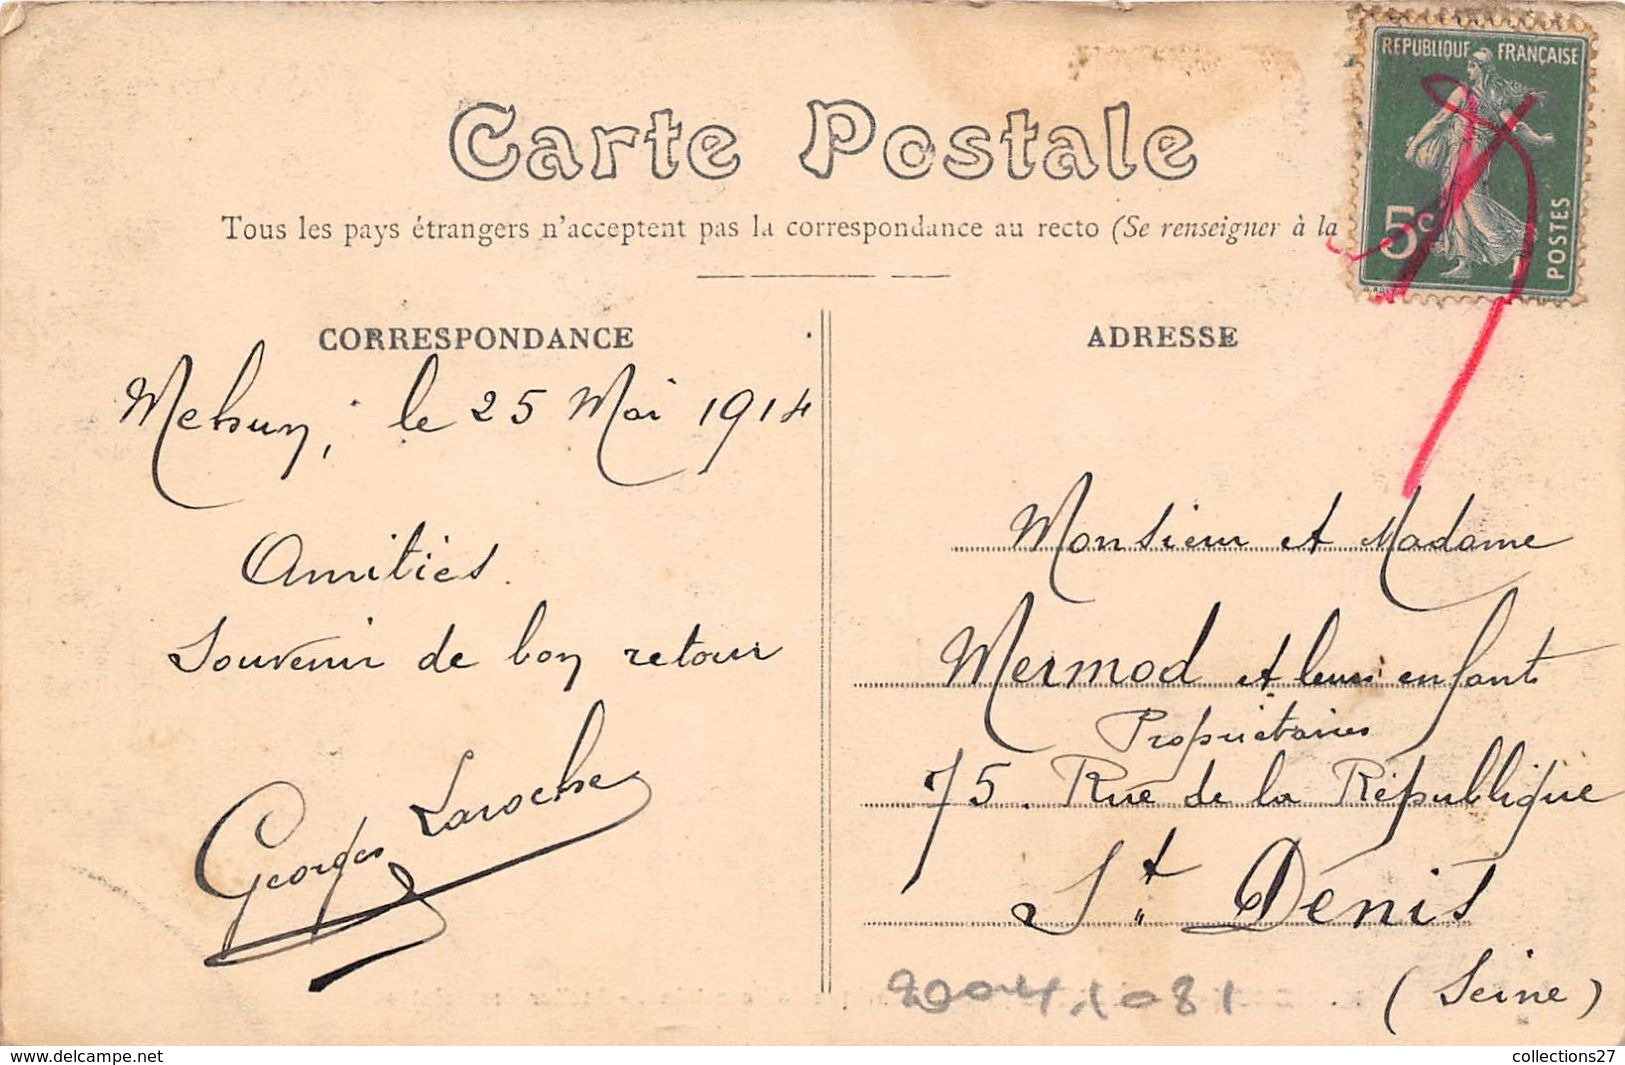 RÉPUBLIQUE FRANÇAISE
5c
POSTES
Carte Postale
Tous les pays étrangers n'acceptent pas la correspondance au recto (Se renseigner à la
CORRESPONDANCE
Mehun, le 25 Mai 1914
Amitiés.
Souvenir de bon retour
Georges Laroche
ADRESSE
Monsieur et Madame
Mermod et leurs enfants
Propriétaires
75. Rue de la République
St. Denis
(Seine)
collections27
www.delcampe.net